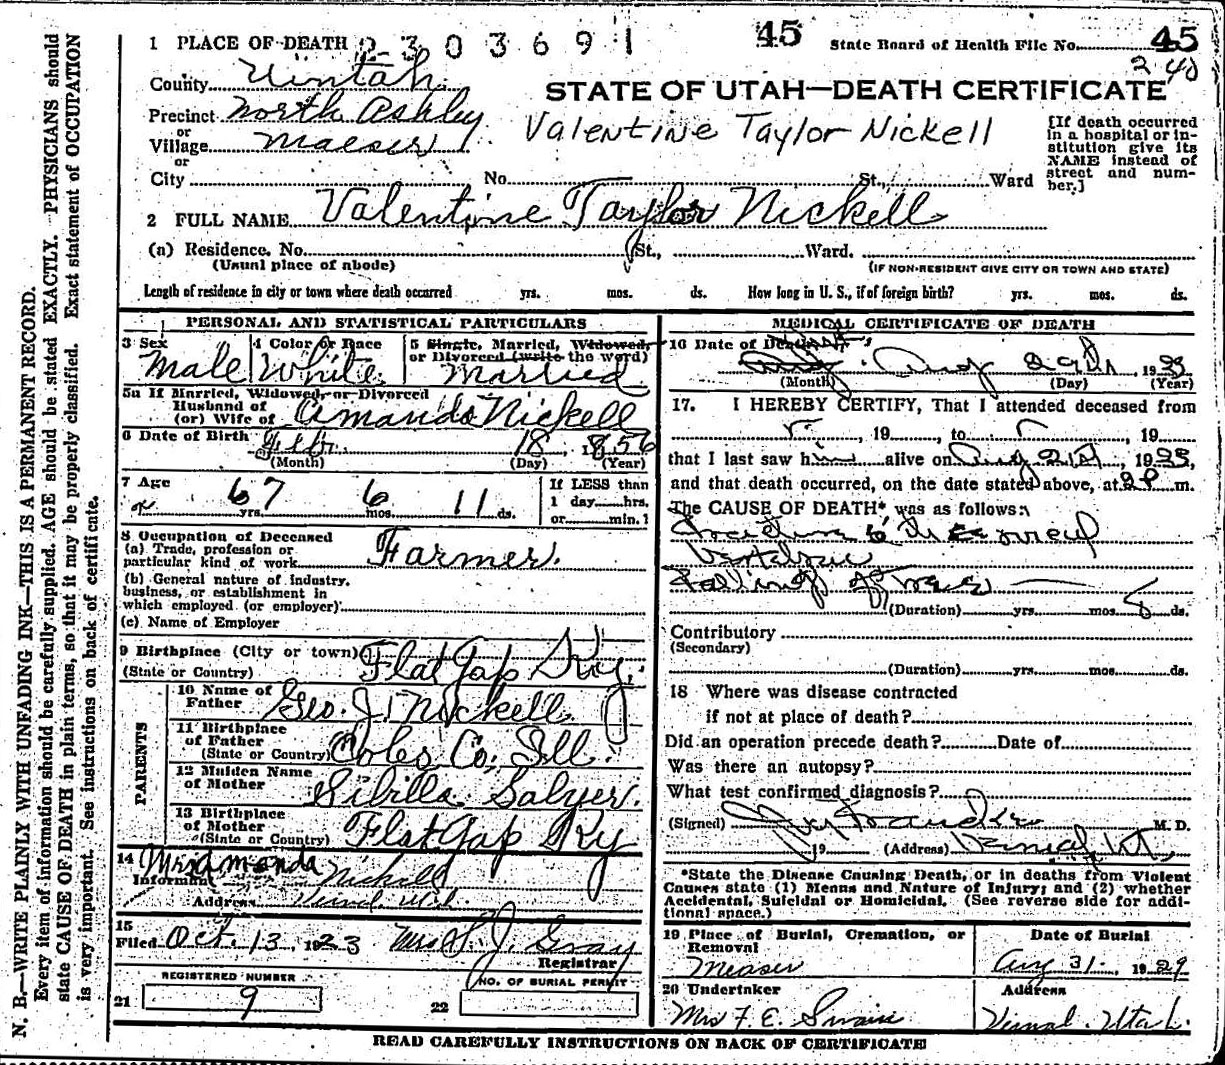 1 PLACE OF DEATH 2-30369 1 45 State Board of Health File No. 45
County Uintah 2 40
STATE OF UTAH—DEATH CERTIFICATE
Precinct North Ashley
or
Village Maeser
Valentine Taylor Nickell
[If death occurred in a hospital or institution give its NAME instead of street and number.]
or
City No. St., Ward
2 FULL NAME Valentine Taylor Nickell
(a) Residence. No. St., Ward.
(Usual place of abode) (IF NON-RESIDENT GIVE CITY OR TOWN AND STATE)
Length of residence in city or town where death occurred yrs. mos. ds. How long in U. S., if of foreign birth? yrs. mos. ds.
PERSONAL AND STATISTICAL PARTICULARS
3 Sex Male
4 Color or Race White
5 Single, Married, Widowed, or Divorced (write the word) Married
5a If Married, Widowed, or Divorced
Husband of
(or) Wife of Amanda Nickell
6 Date of Birth Feb. 18, 1856
(Month) (Day) (Year)
7 Age 67 yrs. 6 mos. 11 ds.
If LESS than
1 day hrs.
or min.
8 Occupation of Deceased
(a) Trade, profession or
particular kind of work Farmer.
(b) General nature of industry,
business, or establishment in
which employed (or employer)
(c) Name of Employer
9 Birthplace (City or town) Flat Gap Ky.
(State or Country)
PARENTS
10 Name of
Father Geo. J. Nickell
11 Birthplace
of Father
(State or Country) Coles Co, Ill.
12 Maiden Name
of Mother Sibilla Salyer.
13 Birthplace
of Mother
(State or Country) Flat Gap Ky
14 Mrs Amanda Nickell
Informant
Address Vernal Utah
15
Filed Oct. 13, 1923 Mrs H. J. Gray
Registrar
REGISTERED NUMBER NO. OF BURIAL PERMIT
21 9 22
MEDICAL CERTIFICATE OF DEATH
16 Date of Death Aug 29th, 1923
(Month) (Day) (Year)
17. I HEREBY CERTIFY, That I attended deceased from
, 19 , to , 19
that I last saw him alive on Aug 21st, 1923,
and that death occurred, on the date stated above, at m.
The CAUSE OF DEATH* was as follows:
Fracture
Falling
(Duration) yrs. mos. 8 ds.
Contributory
(Secondary)
(Duration) yrs. mos. ds.
18 Where was disease contracted
if not at place of death?
Did an operation precede death? Date of
Was there an autopsy?
What test confirmed diagnosis?
(Signed) M. D.
, 19 (Address) Vernal, Ut,
*State the Disease Causing Death, or in deaths from Violent
Causes state (1) Means and Nature of Injury; and (2) whether
Accidental, Suicidal or Homicidal. (See reverse side for addi-
tional space.)
19 Place of Burial, Cremation, or
Removal
Measer
Date of Burial
Aug 31, 1929
20 Undertaker
Mrs F. E. Swain
Address
Vernal. Utah.
READ CAREFULLY INSTRUCTIONS ON BACK OF CERTIFICATE
N. B.—WRITE PLAINLY WITH UNFADING INK—THIS IS A PERMANENT RECORD.
Every item of information should be carefully supplied. AGE should be stated EXACTLY. PHYSICIANS should
state CAUSE OF DEATH in plain terms, so that it may be properly classified. Exact statement of OCCUPATION
is very important. See instructions on back of certificate.